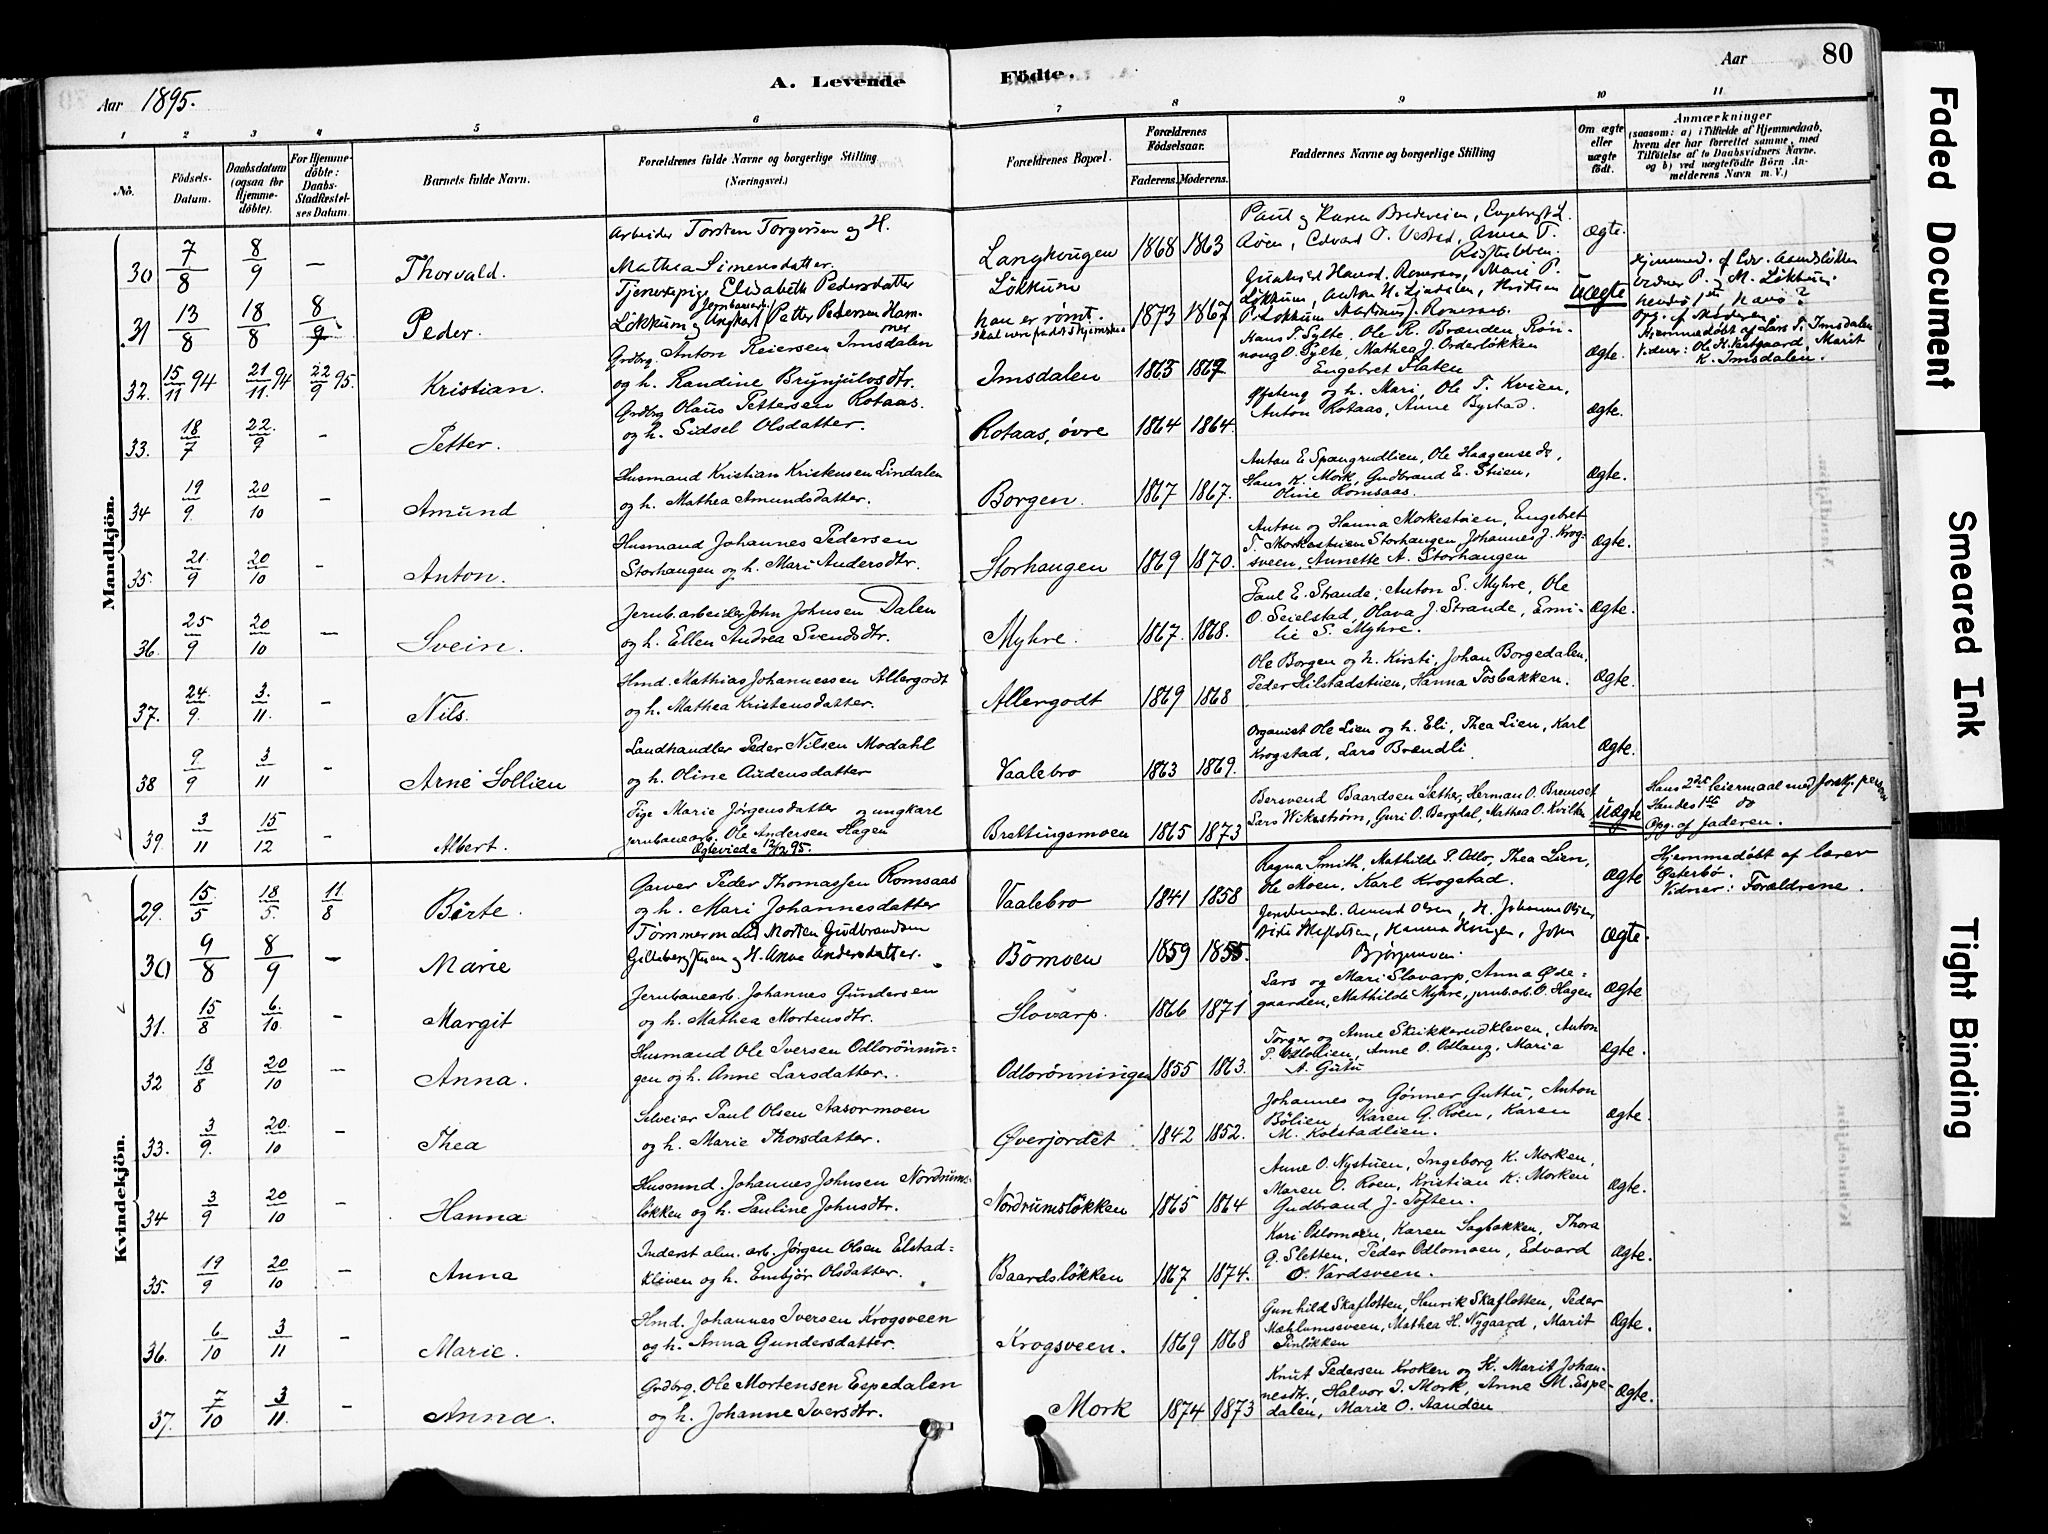 80
Aar 1895.
A. Levende Födte.
Aar
1 2 3 4 5 6 7 8 9 10 11
No.
Födsels-Datum.
Daabsdatum (ogsaa for Hjemmedøbte).
For Hjemmedöbte: Daabs-Stadfæstelses Datum.
Barnets fulde Navn.
Forældrenes fulde Navne og borgerlige Stilling
(Næringsvei.)
Forældrenes Bopæl.
Forældrenes Födselsaar.
Faderens. Moderens.
Faddernes Navne og borgerlige Stilling
Om ægte eller uægte födt.
Anmærkninger
(saasom: a) i Tilfælde af Hjemmedaab, hvem der har forrettet samme, med Tilföielse af to Daabsvidners Navne. og b) ved uægtefödte Börn Anmelderens Navn m. V.)
Mandkjön.
30 7/8 8/9 — Thorvald.
Arbeider Torsten Torgersen og H.
Mathea Simensdatter.
Langhaugen 1868 1863
Paul og Karen Bredeveien, Engebregt L.
Røen, Edvard O. Vestad, Anna T.
ægte.
31 13/8 18/8 8/9 Peder.
Tjenestepige Elisabeth Pedersdatter
Løkkum og Ungkarl Petter Pedersen Hammer
Løkkum
han er rømt.
1873 1867
Løkkum, Anton H. Ljødalen, Kristian
P. Løkkum Martinus J.
Uægte
32. 15/11 94 21/11 94 22/9 95. Kristian.
Grdbrg. Anton Reiersen Imsdalen
og h. Randine Brynjulvsdtr.
Imsdalen 1865 1869
Hans T. Sylte. Ole R. Brænden, Rønnoug O. Sylte, Mathea J. Orderløkken
Engebret Flaten
ægte.
Hjemmedøbt af Lars T. Imsdalen
Vidner: Ole H. Vestgaard, Marit
K. Imsdalen.
33. 18/7 22/9 - Petter.
Grdbrg Olaus Pettersen Rotaas.
og h. Sidsel Olsdatter.
Rotaas, övre 1864 1864.
og h. Mari, Ole T. Kvien,
Anton Rotaas, Anne Bystad.
ægte.
34 19/9. 20/10 - Amund
Husmand Kristian Kristensen Lindalen
og h. Mathea Amundsdatter.
Borgen. 1867 1867.
Anton E. Spangrudlien, Ole Haagensen do,
Hans K. Mork, Gudbrand E. Stuen,
Oline Romsaas.
ægte.
35. 21/9 20/10 - Anton.
Husmand Johannes Pedersen
Storhaugen og h. Mari Andersdtr.
Storhaugen 1869 1870.
Anton og Hanna Morkestuen, Engebret
T. Morkestuen Storhaugen, Johannes J. Krogsveen, Annette A. Storhaugen
ægte.
36. 25/9 20/10 — Svein.
Jernb. arbeider John Johnsen Dalen
og h. Ellen Andrea Svendsdtr.
Myhre. 1867. 1868.
Paul E. Strande, Anton S. Myhre, Ole
O. Seielstad, Olava J. Strande, Emilie S. Myhre.
ægte.
37. 24/9. 3/11. - Nils.
Hmd. Mathias Johannessen Allergodt
og h. Mathea Kristensdatter.
Allergodt 1869 1868
Ole Borgen og h. Kirsti, Johan Borgedalen,
Peder Hilstadstuen, Hanna Fosbakken.
ægte.
38 9/9 3/11 - Arne Sollien
Landhandler Peder Nilsen Modahl
og h. Oline Audensdatter
Vaalebro 1863 1869.
Organist Ole Lien og h. Eli, Thea Lien, Karl
Krogstad, Lars Brændli.
ægte.
39 3/11 15/12 Albert.
Pige Marie Jörgensdatter og ungkarl
jernbanearb. Ole Andersen Hagen
Ægteviede 12/12 95.
Brettingsmoen 1865 1873
Bersvend Baardsen Sæther, Herman O. Brenset
Lars Wikstrøm, Guri O. Bergdal, Mathea O.
Uægte
Hans 2det leiermaal med forskj. person
Hendes 1ste do
Opg. af faderen.
Kvindekjön.
29. 15/5 18/5. 11/8 Birte.
Garver Peder Thomassen Romsaas
og h. Mari Johannesdatter
Vaalebro 1841 1858
Ragna Smith, Mathilde P. Odlo, Thea Lien,
Ole Moen, Karl Krogstad.
ægte
Hjemmedöbt af lærer
Vidner: Forældrene.
30 9/8 8/9 — Marie
Tømmermand Morten Gudbrandsen
og H. Anne Andersdatter.
Bömoen 1859 1855.
Hanna Haugen, John
ægte.
31. 15/8 6/10. - Margit
Jernbanearb. Johannes Gundersen
og h. Mathea Mortensdtr.
Slovarp. 1866 1871
Lars og Mari Slovarp, Anna Ødegaarden, Mathilde Myhre, jernb. arb. O. Hagen
ægte
32 18/8 20/10 — Anna.
Husmand Ole Iversen Odlorönningen og h. Anne Larsdatter.
Odlorönningen 1855 1863.
Torger og Anne Skikkerudkleven, Anton
P. Odlolien, Anne O. Odlaug, Marie
A. Gutu
ægte.
33. 3/9. 20/10 - Thea
Selveier Paul Olsen Aasørmoen
og h. Marie Thorsdatter.
Øverjordet 1842 1852.
Johannes og Gönner Guttu, Anton
Bölien, Karen G. Roen, Karen
M. Kolstadlien.
ægte.
34 3/9 20/10 - Hanna
Husmnd. Johannes Johnsen Nordrumsløkken og h. Pauline Johnsdtr.
Nordrumsløkken 1865 1864
Anne O. Nystuen, Ingeborg K. Morken,
Maren O. Roen, Kristian K. Morken
Gudbrand J. Toften.
ægte.
35. 19/9 20/10 - Anna
Inderst alm. arb. Jørgen Olsen Elstadkliven og h. Embjör Olsdatter.
Baardsløkken 1867 1874.
Kari Odlomoen, Karen Sagbakken, Thora
G. Sletten, Peder Odlomoen, Edvard
O. Vardsveen.
ægte.
36. 6/10 3/11 - Marie.
Hmd. Johannes Iversen Krogsveen
og h. Anna Gundersdatter.
Krogsveen. 1869 1868
Gunhild Skaflotten, Henrik Skaflotten, Peder
Mæhlumsveen, Mathea H. Nygaard, Marit
Pinløkken
ægte.
37. 7/10 3/11. - Anna.
Grdbrg. Ole Mortensen Espedalen
og h. Johanne Iversdtr.
Mork 1874 1873
Knut Pedersen Kroken og K. Marit Johannesdtr., Halvor I. Mork, Anne M. Espedalen, Marie O. Aanden
ægte.
Faded Document
Smeared Ink
Tight Binding